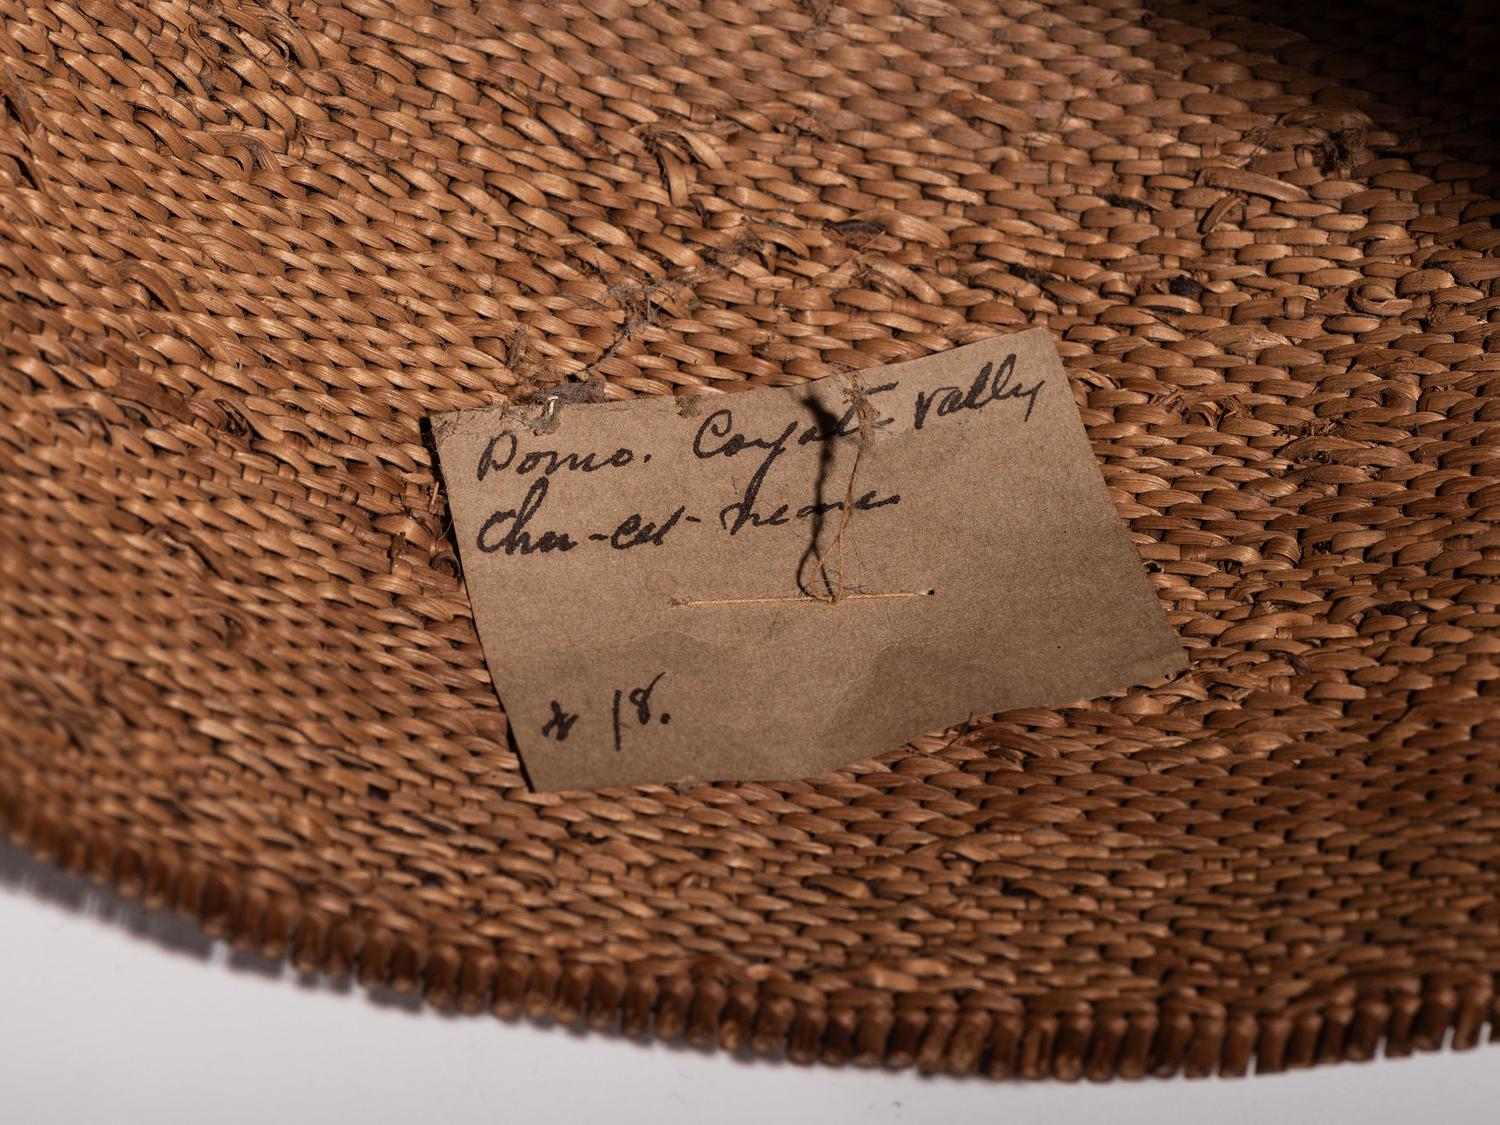 Pomo. Coyote Vally
Chu-cet-
18.